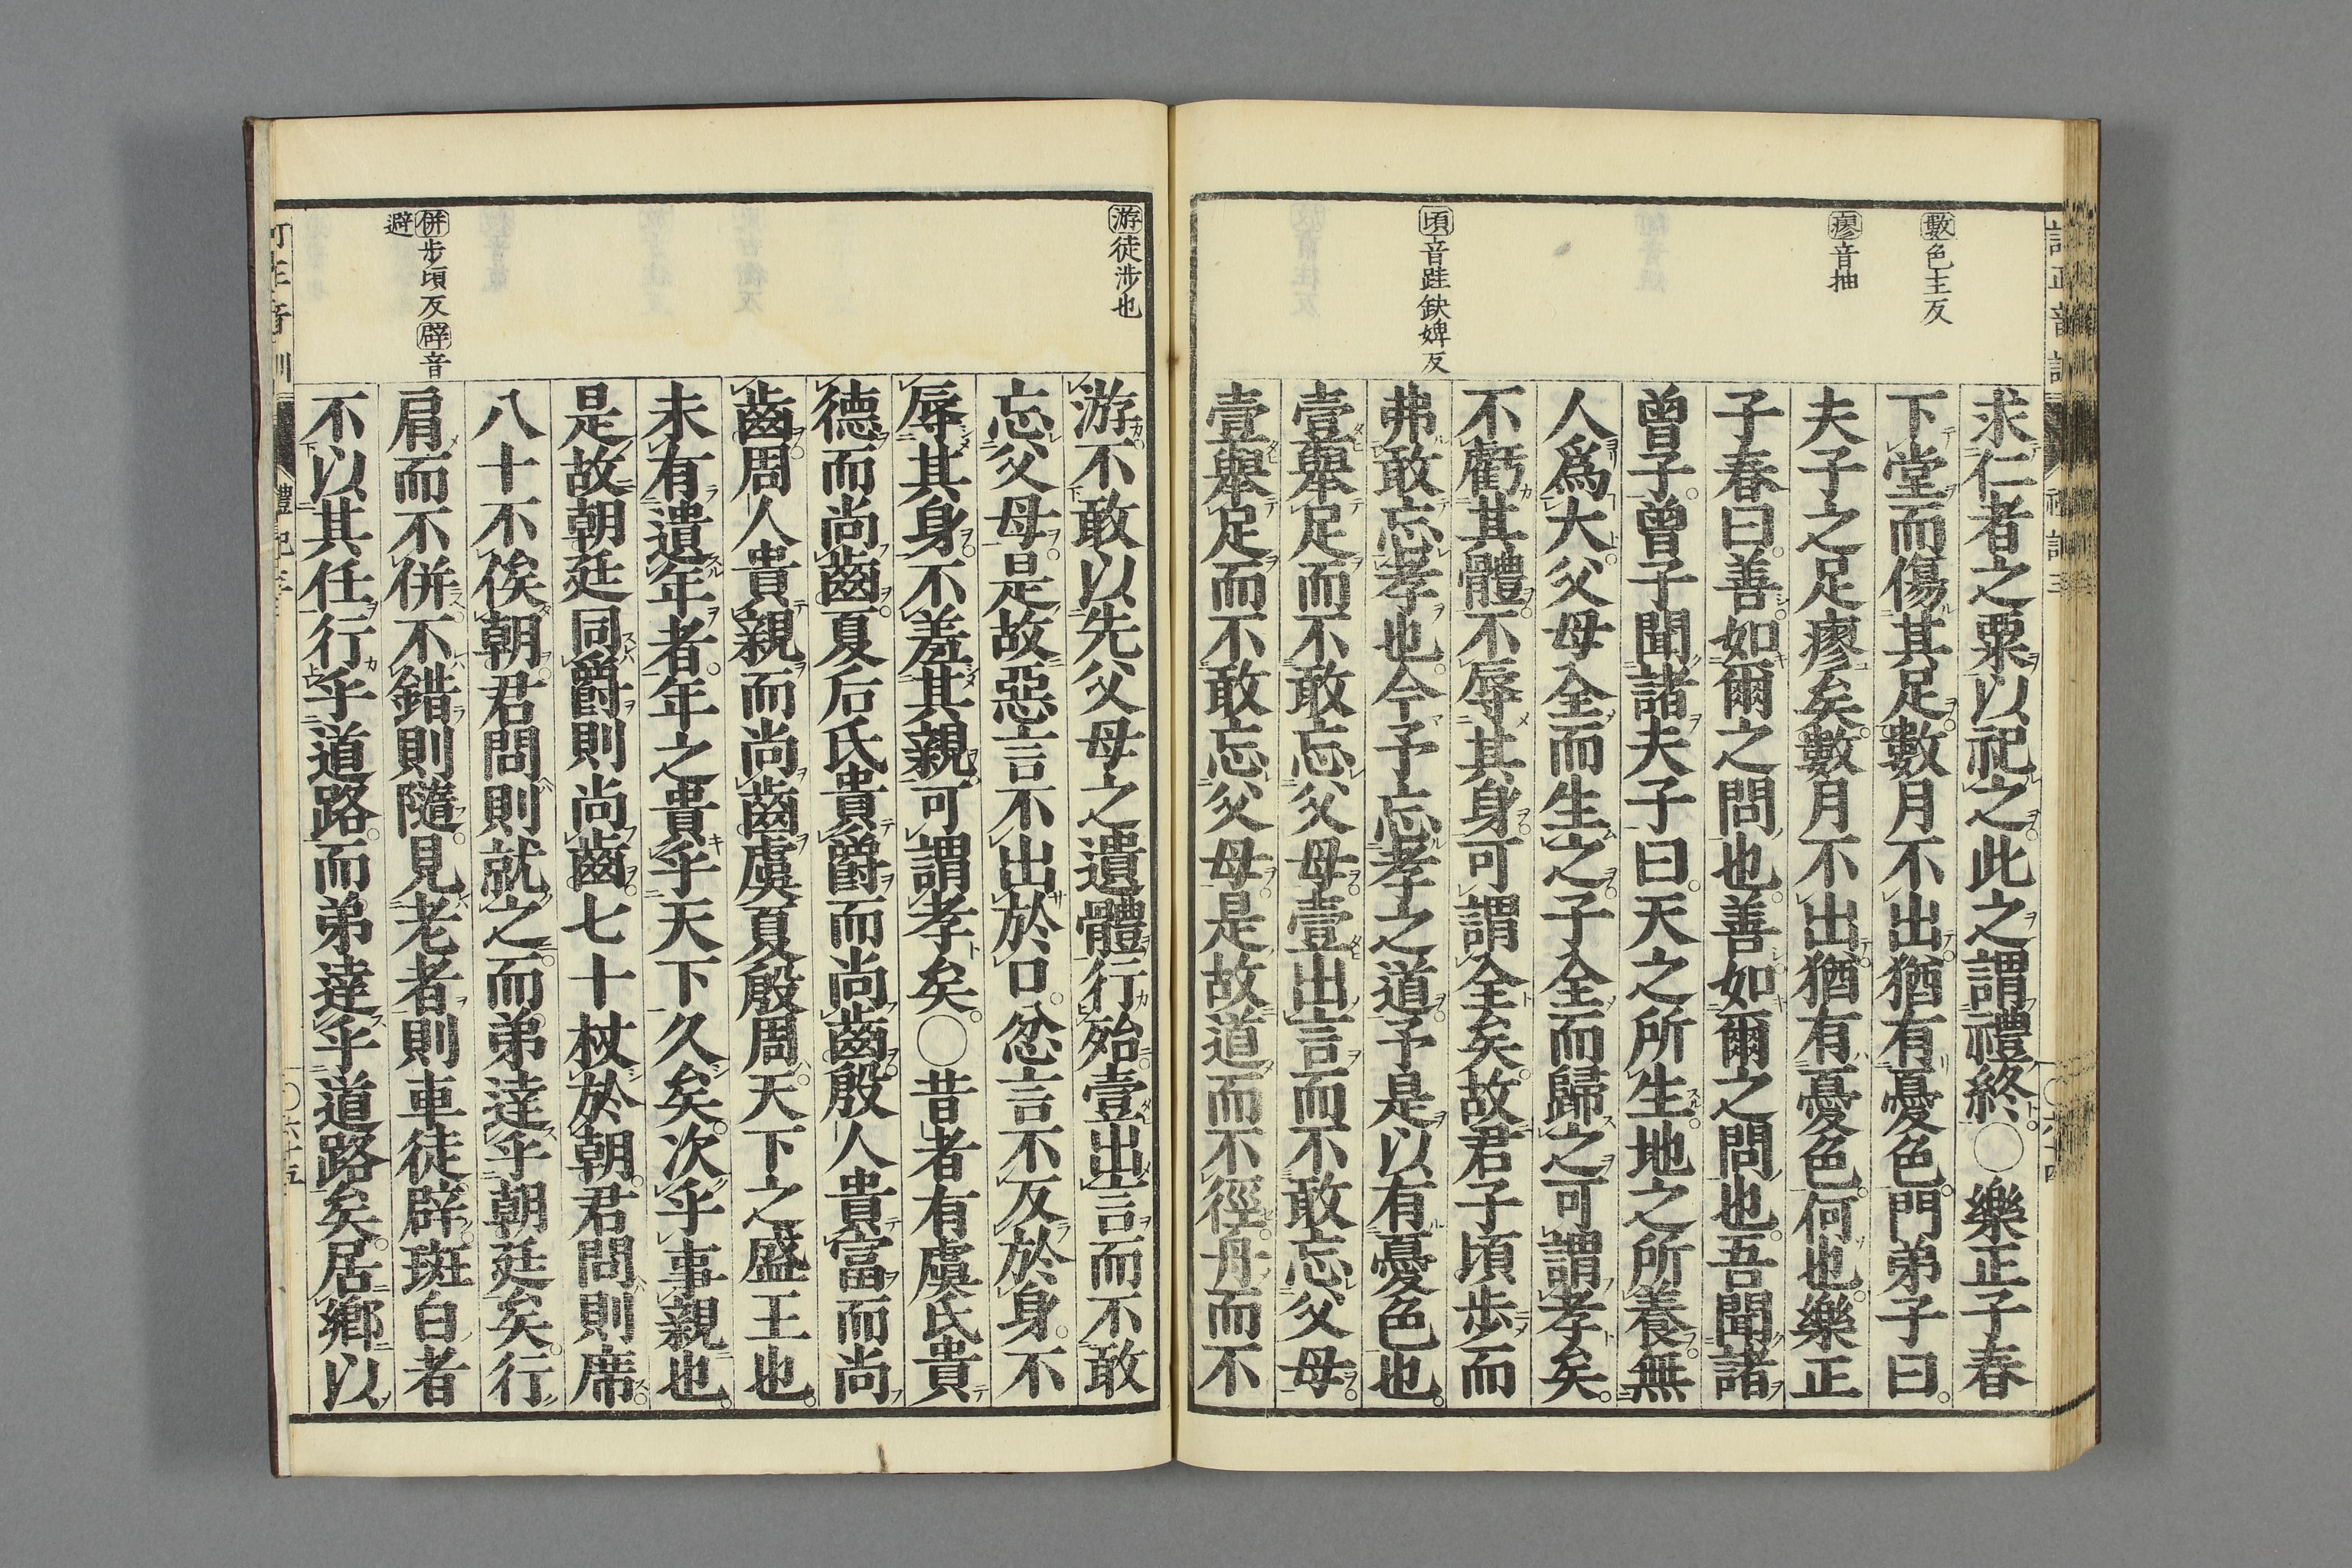 數色主反
瘳音抽
頃音跬缺婢反
求仁者之粟以祀之此之謂禮終○樂正子春
下堂而傷其足數月不出猶有憂色門弟子曰
夫子之足瘳矣數月不出猶有憂色何也樂正
子春曰善如爾之問也善如爾之問也吾聞諸
曾子曾子聞諸夫子曰天之所生地之所養無
人爲大父母全而生之子全而歸之可謂孝矣
不虧其體不辱其身可謂全矣故君子頃步而
弗敢忘孝也今予忘孝之道予是以有憂色也
壹舉足而不敢忘父母壹出言而不敢忘父母
壹舉足而不敢忘父母是故道而不徑舟而不
游徒涉也
併步頃反辟音
避
游不敢以先父母之遺體行殆壹出言而不敢
忘父母是故惡言不出於口忿言不反於身不
辱其身不羞其親可謂孝矣○昔者有虞氏貴
德而尚齒夏后氏貴爵而尚齒殷人貴富而尚
齒周人貴親而尚齒虞夏殷周天下之盛王也
未有遺年者年之貴乎天下久矣次乎事親也
是故朝廷同爵則尚齒七十杖於朝君問則席
八十不俟朝君問則就之而弟達乎朝廷矣行
肩而不併不錯則隨見老者則車徒辟斑白者
不以其任行乎道路而弟達乎道路矣居鄉以